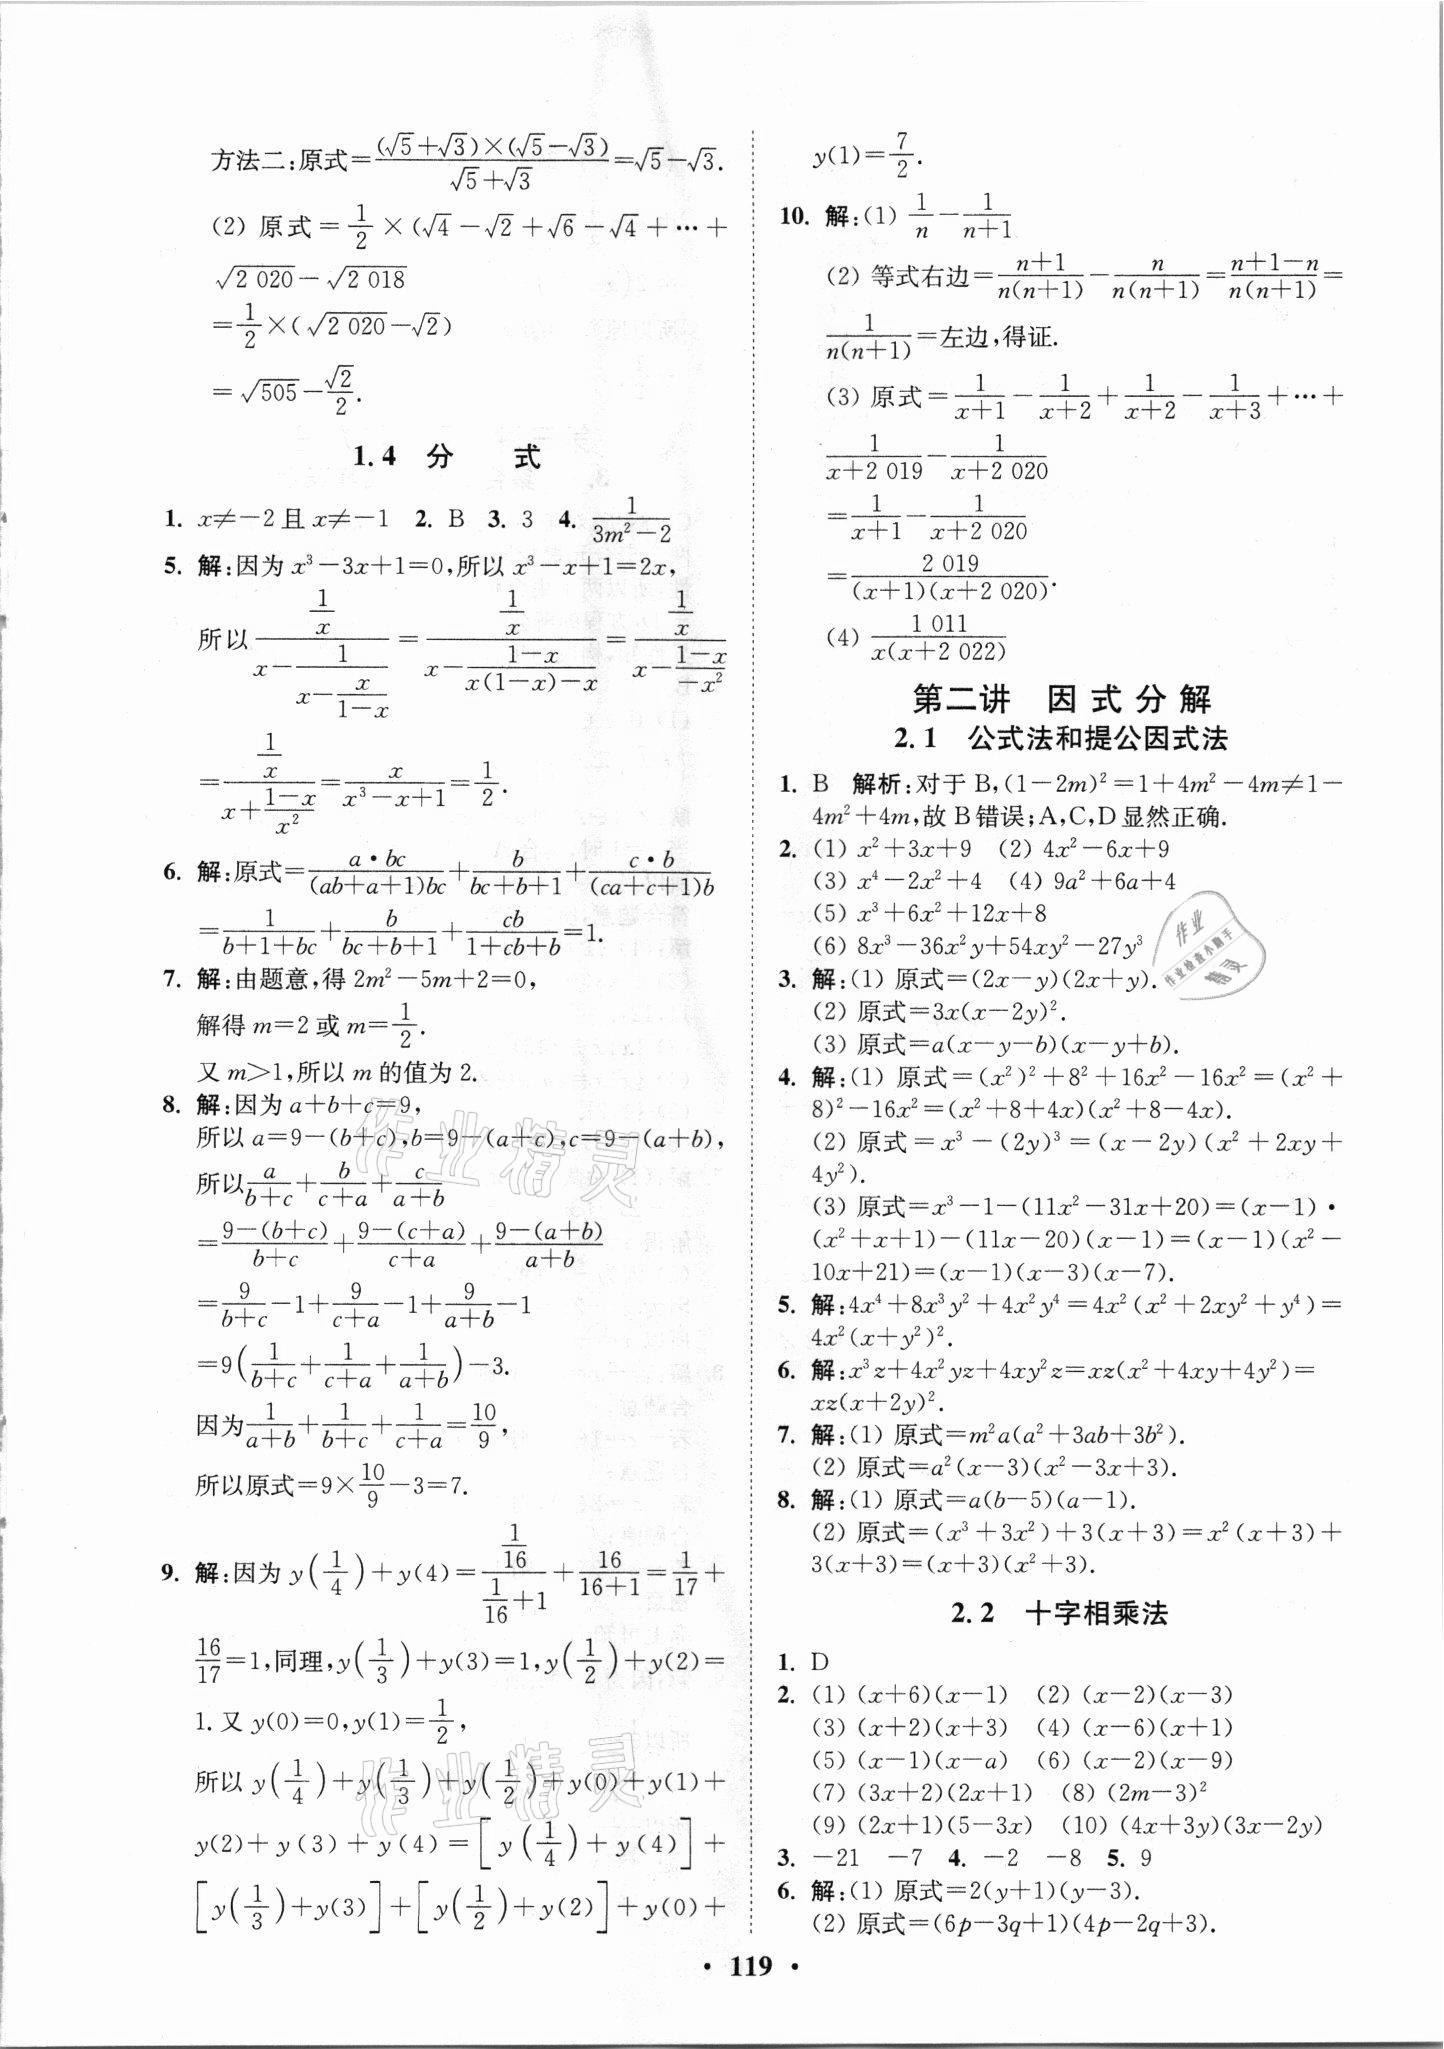 方法二:原式=\frac{(\sqrt{5}+\sqrt{3})×(\sqrt{5}-\sqrt{3})}{\sqrt{5}+\sqrt{3}}=\sqrt{5}-\sqrt{3}.
(2) 原式=\frac{1}{2}×(\sqrt{4}-\sqrt{2}+\sqrt{6}-\sqrt{4}+…+
\sqrt{2 020}-\sqrt{2 018}
=\frac{1}{2}×(\sqrt{2 020}-\sqrt{2})
=\sqrt{505}-\frac{\sqrt{2}}{2}.
1.4 分 式
1. x≠-2且x≠-1 2. B 3. 3 4. \frac{1}{3m²-2}
5. 解:因为x³-3x+1=0,所以x³-x+1=2x,
所以\frac{\frac{1}{x}}{x-\frac{1}{x-\frac{x}{1-x}}}=\frac{\frac{1}{x}}{x-\frac{1-x}{x(1-x)-x}}=\frac{\frac{1}{x}}{x-\frac{1-x}{-x²}}
=\frac{\frac{1}{x}}{x+\frac{1-x}{x²}}=\frac{x}{x³-x+1}=\frac{1}{2}.
6. 解:原式=\frac{a·bc}{(ab+a+1)bc}+\frac{b}{bc+b+1}+\frac{c·b}{(ca+c+1)b}
=\frac{1}{b+1+bc}+\frac{b}{bc+b+1}+\frac{cb}{1+cb+b}=1.
7. 解:由题意,得2m²-5m+2=0,
解得m=2或m=\frac{1}{2}.
又m>1,所以m的值为2.
8. 解:因为a+b+c=9,
所以a=9-(b+c),b=9-(a+c),c=9-(a+b),
所以\frac{a}{b+c}+\frac{b}{c+a}+\frac{c}{a+b}
=\frac{9-(b+c)}{b+c}+\frac{9-(c+a)}{c+a}+\frac{9-(a+b)}{a+b}
=\frac{9}{b+c}-1+\frac{9}{c+a}-1+\frac{9}{a+b}-1
=9(\frac{1}{b+c}+\frac{1}{c+a}+\frac{1}{a+b})-3.
因为\frac{1}{a+b}+\frac{1}{b+c}+\frac{1}{c+a}=\frac{10}{9},
所以原式=9×\frac{10}{9}-3=7.
9. 解:因为y(\frac{1}{4})+y(4)=\frac{\frac{1}{16}}{\frac{1}{16}+1}+\frac{16}{16+1}=\frac{1}{17}+
\frac{16}{17}=1,同理,y(\frac{1}{3})+y(3)=1,y(\frac{1}{2})+y(2)=
1.又y(0)=0,y(1)=\frac{1}{2},
所以y(\frac{1}{4})+y(\frac{1}{3})+y(\frac{1}{2})+y(0)+y(1)+
y(2)+y(3)+y(4)=[y(\frac{1}{4})+y(4)]+
[y(\frac{1}{3})+y(3)]+[y(\frac{1}{2})+y(2)]+y(0)+
y(1)=\frac{7}{2}.
10. 解:(1) \frac{1}{n}-\frac{1}{n+1}
(2) 等式右边=\frac{n+1}{n(n+1)}-\frac{n}{n(n+1)}=\frac{n+1-n}{n(n+1)}=
\frac{1}{n(n+1)}=左边,得证.
(3) 原式=\frac{1}{x+1}-\frac{1}{x+2}+\frac{1}{x+2}-\frac{1}{x+3}+…+
\frac{1}{x+2 019}-\frac{1}{x+2 020}
=\frac{1}{x+1}-\frac{1}{x+2 020}
=\frac{2 019}{(x+1)(x+2 020)}.
(4) \frac{1 011}{x(x+2 022)}
第二讲 因式分解
2.1 公式法和提公因式法
1. B 解析:对于B,(1-2m)²=1+4m²-4m≠1-
4m²+4m,故B错误;A,C,D显然正确.
2. (1) x²+3x+9 (2) 4x²-6x+9
(3) x⁴-2x²+4 (4) 9a²+6a+4
(5) x³+6x²+12x+8
(6) 8x³-36x²y+54xy²-27y³
3. 解:(1) 原式=(2x-y)(2x+y).
(2) 原式=3x(x-2y)².
(3) 原式=a(x-y-b)(x-y+b).
4. 解:(1) 原式=(x²)²+8²+16x²-16x²=(x²+
8)²-16x²=(x²+8+4x)(x²+8-4x).
(2) 原式=x³-(2y)³=(x-2y)(x²+2xy+
4y²).
(3) 原式=x³-1-(11x²-31x+20)=(x-1)·
(x²+x+1)-(11x-20)(x-1)=(x-1)(x²-
10x+21)=(x-1)(x-3)(x-7).
5. 解:4x⁴+8x³y²+4x²y⁴=4x²(x²+2xy²+y⁴)=
4x²(x+y²)².
6. 解:x³z+4x²yz+4xy²z=xz(x²+4xy+4y²)=
xz(x+2y)².
7. 解:(1) 原式=m²a(a²+3ab+3b²).
(2) 原式=a²(x-3)(x²-3x+3).
8. 解:(1) 原式=a(b-5)(a-1).
(2) 原式=(x³+3x²)+3(x+3)=x²(x+3)+
3(x+3)=(x+3)(x²+3).
2.2 十字相乘法
1. D
2. (1) (x+6)(x-1) (2) (x-2)(x-3)
(3) (x+2)(x+3) (4) (x-6)(x+1)
(5) (x-1)(x-a) (6) (x-2)(x-9)
(7) (3x+2)(2x+1) (8) (2m-3)²
(9) (2x+1)(5-3x) (10) (4x+3y)(3x-2y)
3. -21 -7 4. -2 -8 5. 9
6. 解:(1) 原式=2(y+1)(y-3).
(2) 原式=(6p-3q+1)(4p-2q+3).
· 119 ·
作业精灵
作业精灵
作业
作业检查小助手
精灵